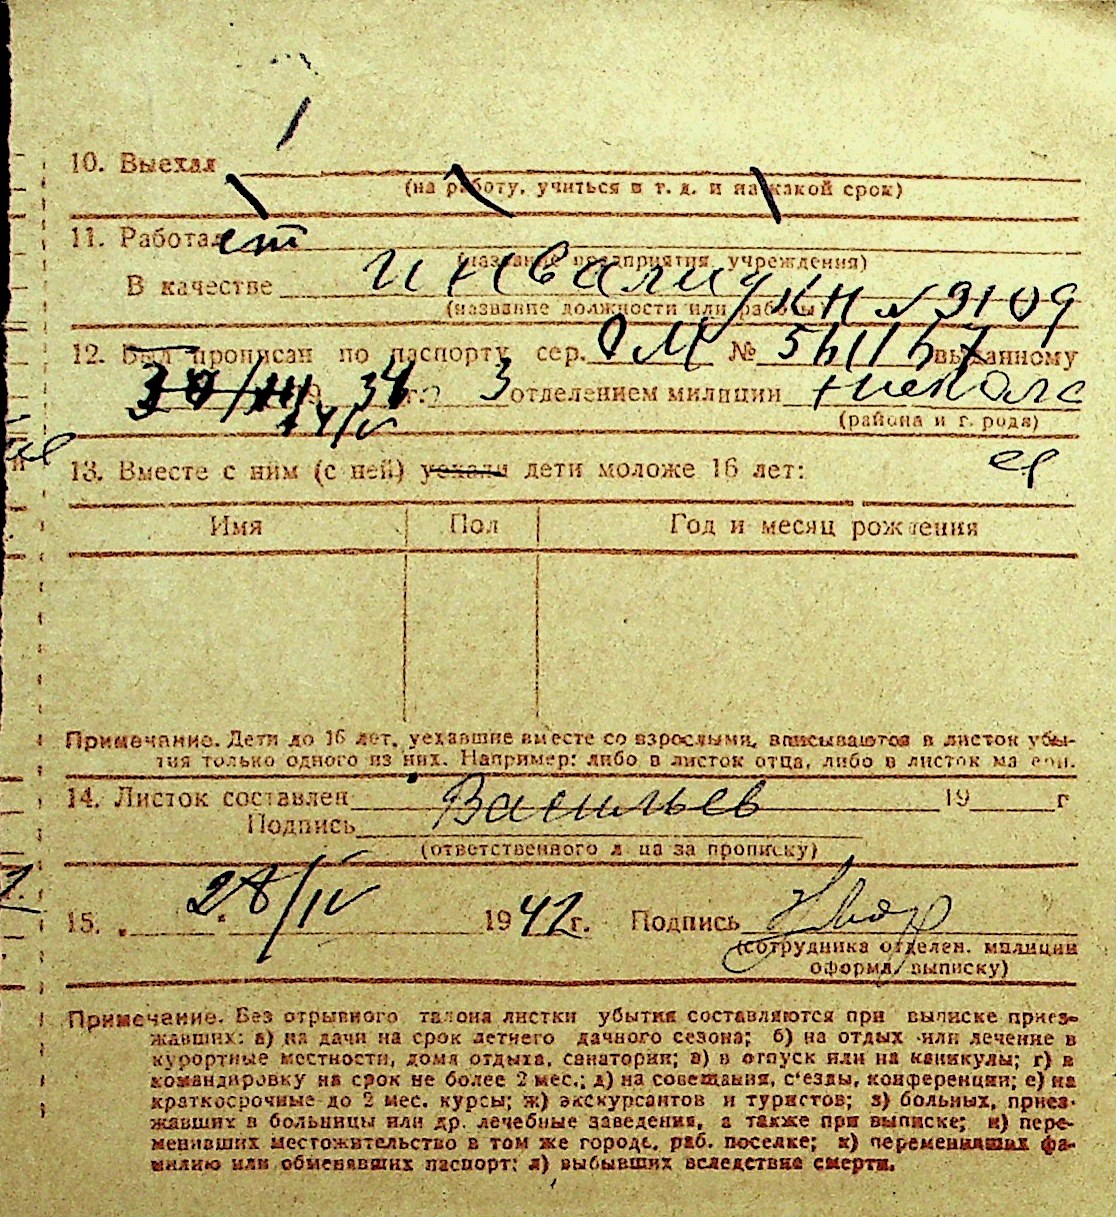 10. Выехал
(на работу, учиться и т. д. и на какой срок)
11. Работал
(название предприятия, учреждения)
В качестве инвалид
(название должности или работы) КН № 3109
12. Был прописан по паспорту сер. ОМ № выданному
34 г. 3 отделением милиции
(района и города)
13. Вместе с ним (с ней) уехали дети моложе 16 лет:
Имя Пол Год и месяц рождения
Примечание. Дети до 16 лет, уехавшие вместе со взрослыми, вписываются в листок убы-
тия только одного из них. Например: либо в листок отца, либо в листок ма ери.
14. Листок составлен Васильев 19 г
Подпись
(ответственного л ца за прописку)
15. 28/IV 1942 г. Подпись
(сотрудника отделен. милиции
оформл. выписку)
Примечание. Без отрывного талона листки убытия составляются при выписке приез-
жавших: а) на дачи на срок летнего дачного сезона; б) на отдых или лечение в
курортные местности, дома отдыха, санатории; в) в отпуск или на каникулы; г) в
командировку на срок не более 2 мес.; д) на совещания, с'езды, конференции; е) на
краткосрочные до 2 мес. курсы; ж) экскурсантов и туристов; з) больных, приез-
жавших в больницы или др. лечебные заведения, а также при выписке; и) пере-
менивших местожительство в том же городе, раб. поселке; к) переменивших фа-
милию или обменявших паспорт; л) выбывших вследствие смерти.